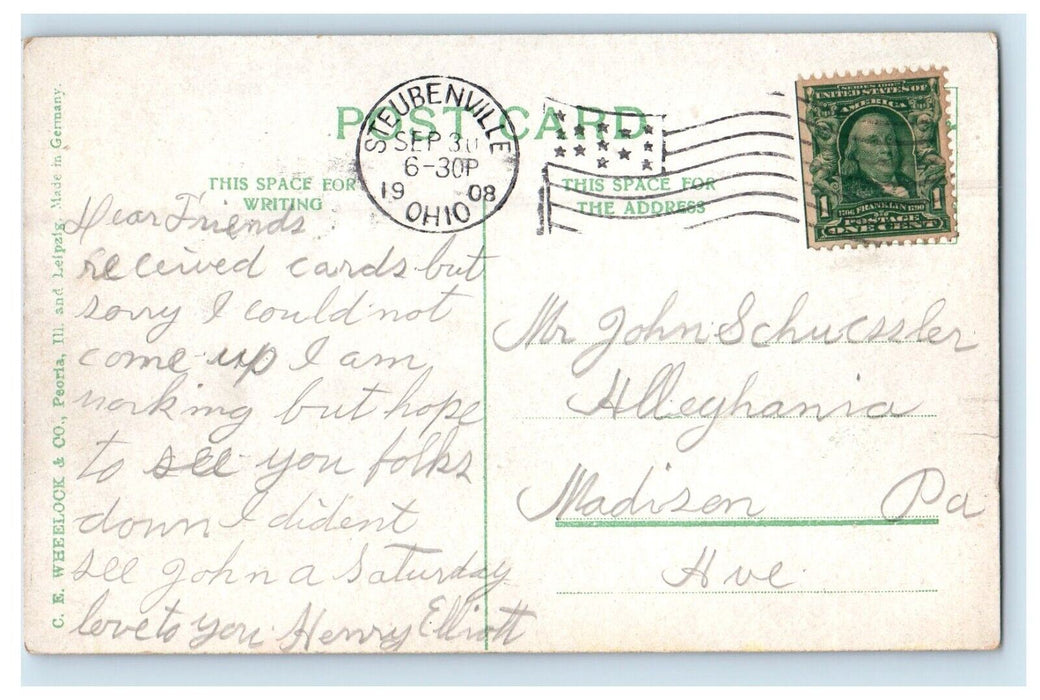 POST CARD
STEUBENVILLE
SEP 30
6-30P
1908
OHIO
SERIES 1902
UNITED STATES OF
AMERICA
1 1
1706 FRANKLIN 1790
POSTAGE
ONE CENT
THIS SPACE FOR
WRITING
THIS SPACE FOR
THE ADDRESS
Dear Friends
received cards but
sorry I could not
come up I am
working but hope
to see you folks
down I dident
see John a Saturday
love to you Henry Elliott
Mr John Schuessler
Alleghania
Madison Pa
Ave
C. E. WHEELOCK & CO., Peoria, Ill. and Leipzig. Made in Germany.